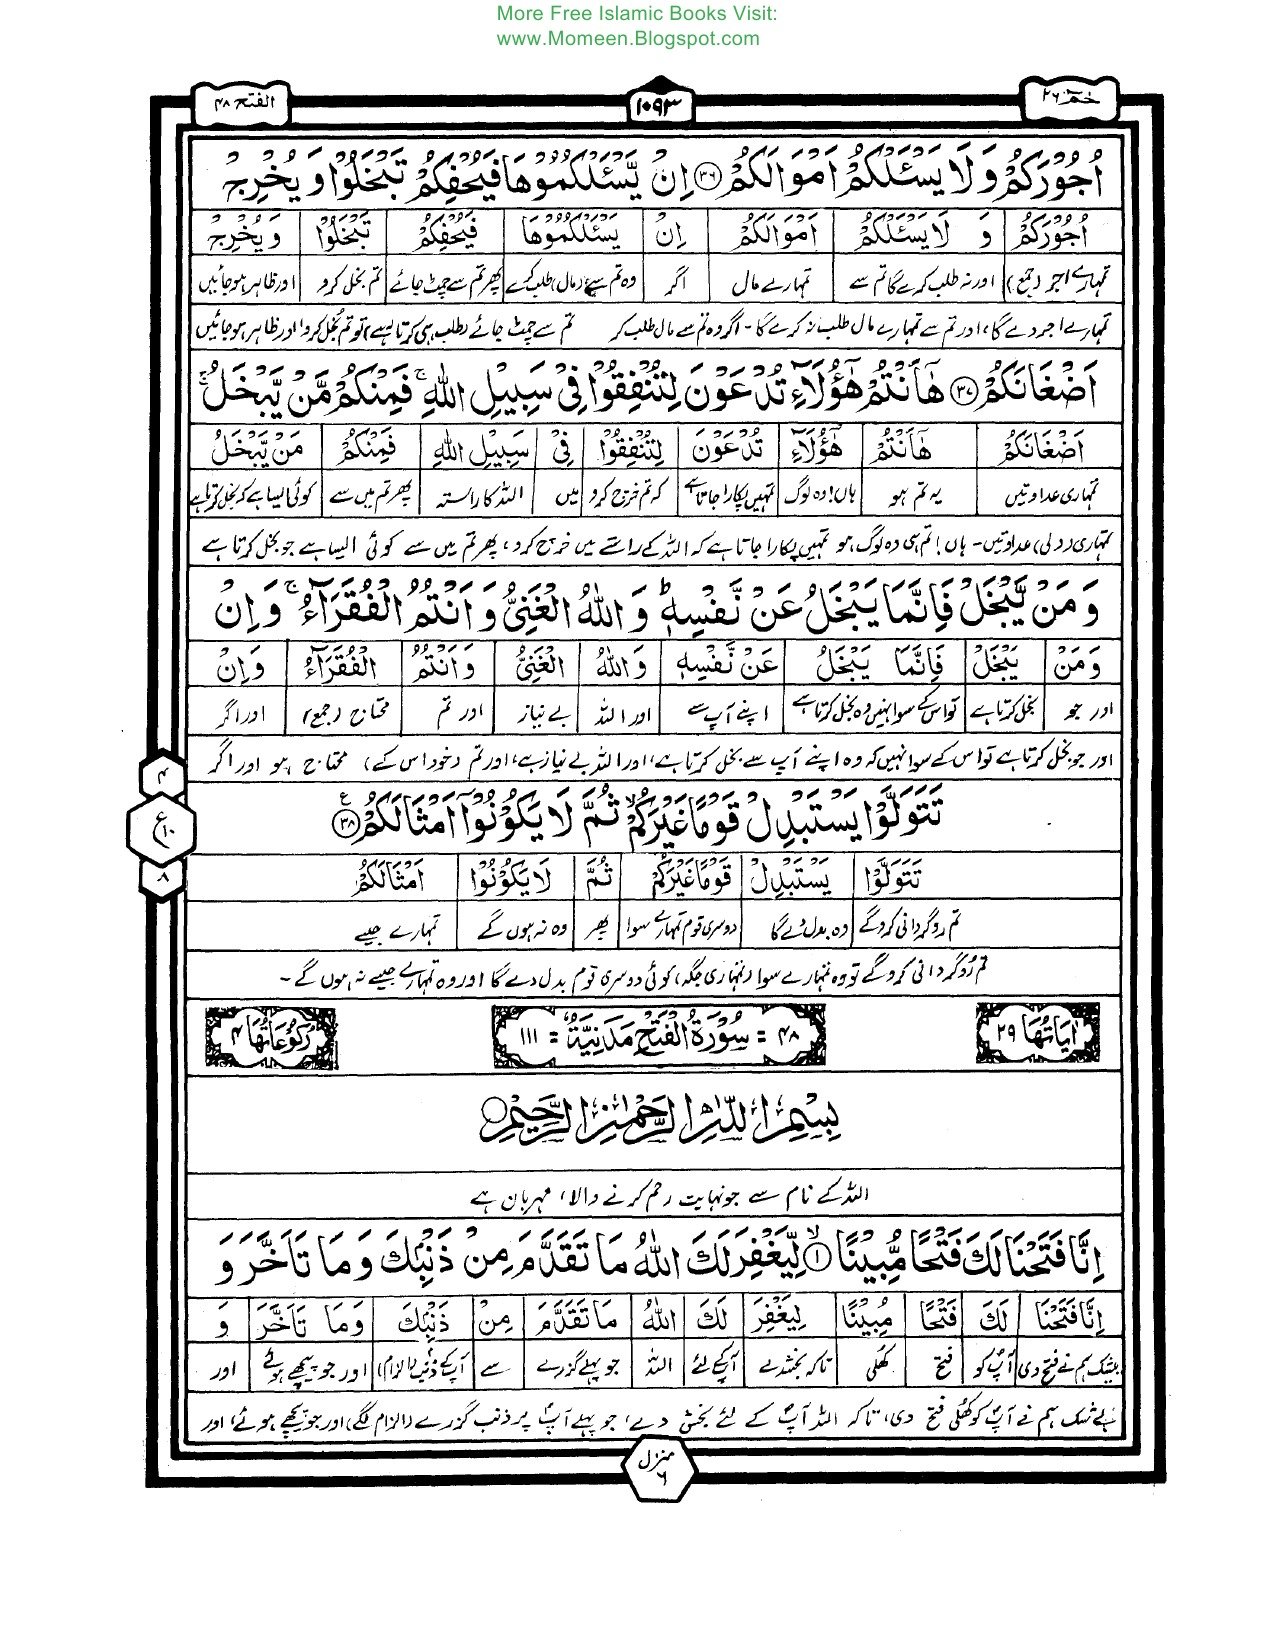 More Free Islamic Books Visit:
www.Momeen.Blogspot.com
حٰمٓ ۲۶ ۱۰۹۳ الفتح ۴۸
اُجُوْرَكُمْ وَ لَا يَسْـَٔلْكُمْ اَمْوَالَكُمْ ۝۳۶ اِنْ يَّسْـَٔلْكُمُوْهَا فَيُحْفِكُمْ تَبْخَلُوْا وَ يُخْرِجْ
اُجُوْرَكُمْ وَ لَا يَسْـَٔلْكُمْ اَمْوَالَكُمْ اِنْ يَسْـَٔلْكُمُوْهَا فَيُحْفِكُمْ تَبْخَلُوْا وَ يُخْرِجْ
تمہارے اجر (جمع) اور نہ طلب کرے گا تم سے تمہارے مال اگر وہ تم سے (مال) طلب کرے پھر تم سے چمٹ جائے تم بخل کرو اور ظاہر ہو جائیں
تمہارے اجر دے گا، اور تم سے تمہارے مال طلب نہ کرے گا - اگر وہ تم سے مال طلب کر تم سے چمٹ جائے (طلب ہی کرتا رہے) تو تم بخل کرو اور ظاہر ہو جائیں
اَضْغَانَكُمْ ۝۳۷ هٰٓاَنْتُمْ هٰٓؤُلَآءِ تُدْعَوْنَ لِتُنْفِقُوْا فِيْ سَبِيْلِ اللّٰهِ ۚ فَمِنْكُمْ مَّنْ يَّبْخَلُ ۚ
اَضْغَانَكُمْ هٰٓاَنْتُمْ هٰٓؤُلَآءِ تُدْعَوْنَ لِتُنْفِقُوْا فِيْ سَبِيْلِ اللّٰهِ فَمِنْكُمْ مَنْ يَّبْخَلُ
تمہاری عداوتیں یہ تم ہو ہاں! وہ لوگ تمہیں پکارا جاتا ہے کہ تم خرچ کرو میں اللہ کا راستہ پھر تم میں سے کوئی ایسا ہے کہ بخل کرتا ہے
تمہاری (دلی) عداوتیں- ہاں! تم ہی وہ لوگ ہو تمہیں پکارا جاتا ہے کہ اللہ کے راستے میں خرچ کرو، پھر تم میں سے کوئی ایسا ہے جو بخل کرتا ہے
وَ مَنْ يَّبْخَلْ فَاِنَّمَا يَبْخَلُ عَنْ نَّفْسِهٖ ؕ وَ اللّٰهُ الْغَنِيُّ وَ اَنْتُمُ الْفُقَرَآءُ ۚ وَ اِنْ
وَ مَنْ يَبْخَلْ فَاِنَّمَا يَبْخَلُ عَنْ نَّفْسِهٖ وَ اللّٰهُ الْغَنِيُّ وَ اَنْتُمُ الْفُقَرَآءُ وَ اِنْ
اور جو بخل کرتا ہے تو اس کے سوا نہیں وہ بخل کرتا ہے اپنے آپ سے اور اللہ بے نیاز اور تم محتاج (جمع) اور اگر
اور جو بخل کرتا ہے تو اس کے سوا نہیں کہ وہ اپنے آپ سے بخل کرتا ہے، اور اللہ بے نیاز ہے، اور تم (خود اس کے) محتاج ہو اور اگر
تَتَوَلَّوْا يَسْتَبْدِلْ قَوْمًا غَيْرَكُمْ ۙ ثُمَّ لَا يَكُوْنُوْٓا اَمْثَالَكُمْ ۝۳۸ ع
۴
ع ۱۰
۸
تَتَوَلَّوْا يَسْتَبْدِلْ قَوْمًا غَيْرَكُمْ ثُمَّ لَا يَكُوْنُوْا اَمْثَالَكُمْ
تم روگردانی کرو گے وہ بدل دے گا دوسری قوم تمہارے سوا پھر وہ نہ ہوں گے تمہارے جیسے
تم رُوگردانی کرو گے تو وہ تمہارے سوا (تمہاری جگہ) کوئی دوسری قوم بدل دے گا اور وہ تمہارے جیسے نہ ہوں گے -
اٰيَاتُهَا ۲۹ ۴۸ = سُوْرَةُ الْفَتْحِ مَدَنِيَّةٌ = ۱۱۱ رُكُوْعَاتُهَا ۴
بِسْمِ اللّٰهِ الرَّحْمٰنِ الرَّحِيْمِ
اللہ کے نام سے جو نہایت رحم کرنے والا، مہربان ہے
اِنَّا فَتَحْنَا لَكَ فَتْحًا مُّبِيْنًا ۙ۝۱ لِّيَغْفِرَ لَكَ اللّٰهُ مَا تَقَدَّمَ مِنْ ذَنْۢبِكَ وَ مَا تَاَخَّرَ وَ
اِنَّا فَتَحْنَا لَكَ فَتْحًا مُبِيْنًا لِيَغْفِرَ لَكَ اللّٰهُ مَا تَقَدَّمَ مِنْ ذَنْۢبِكَ وَ مَا تَاَخَّرَ وَ
بیشک ہم نے فتح دی آپؐ کو فتح کھُلی تاکہ بخشدے آپکے لئے اللہ جو پہلے گزرے سے آپکے ذنب (الزام) اور جو پیچھے ہوئے اور
بے شک ہم نے آپؐ کو کھُلی فتح دی، تاکہ اللہ آپؐ کے لئے بخش دے، جو پہلے آپؐ پر ذنب گزرے (الزام لگے) اور جو پیچھے ہوئے، اور
منزل ۶